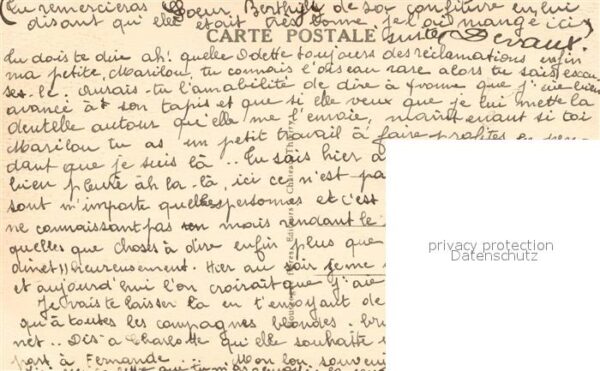 Tu remercieras Soeur Berthille de sa confiture en lui
disant qu'elle était très bonne, je l'ai mangé ici
CARTE POSTALE
Devaux.
tu dois te dire ah! quelle Odette toujours des réclamations enfin
ma petite Marilou, tu connais l'oiseau rare alors tu sais excu-
ses-le. Aurais-tu l'amabilité de dire à Yvonne que j'ai bien
avancé à son tapis et que si elle veux que je lui mette la
dentelle autour qu'elle me l'envoie, maintenant si toi
Marilou tu as un petit travail à faire profites en pen-
dant que je suis là .. Tu sais hier
bien pleuré ah la-là, ici ce n'est pa
sont n'importe quelles personnes et c'est
ne connaissant pas mais rendant le
quelques que choses à dire enfin plus que
heureusement. Hier au soir je me
et aujourd'hui l'on croirait que j'aie
Je vais te laisser là en t'envoyant de
qu'à toutes les compagnes blondes. bru
net.. Dis à Charlotte qu'elle souhaite
part à Fernande ... Mon bon souveni
privacy protection
Datenschutz